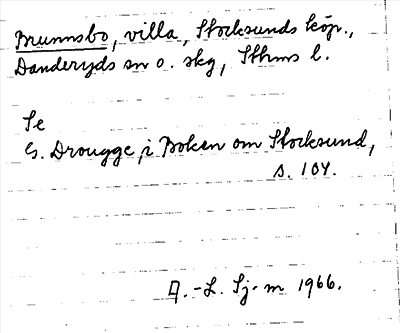 Brunnsbo, villa, Stocksunds köp.,
Danderyds sn o. skg, Sthms l.
Se
G. Drougge, i Boken om Stocksund,
s. 104.
A.-L. Sj-m 1966.